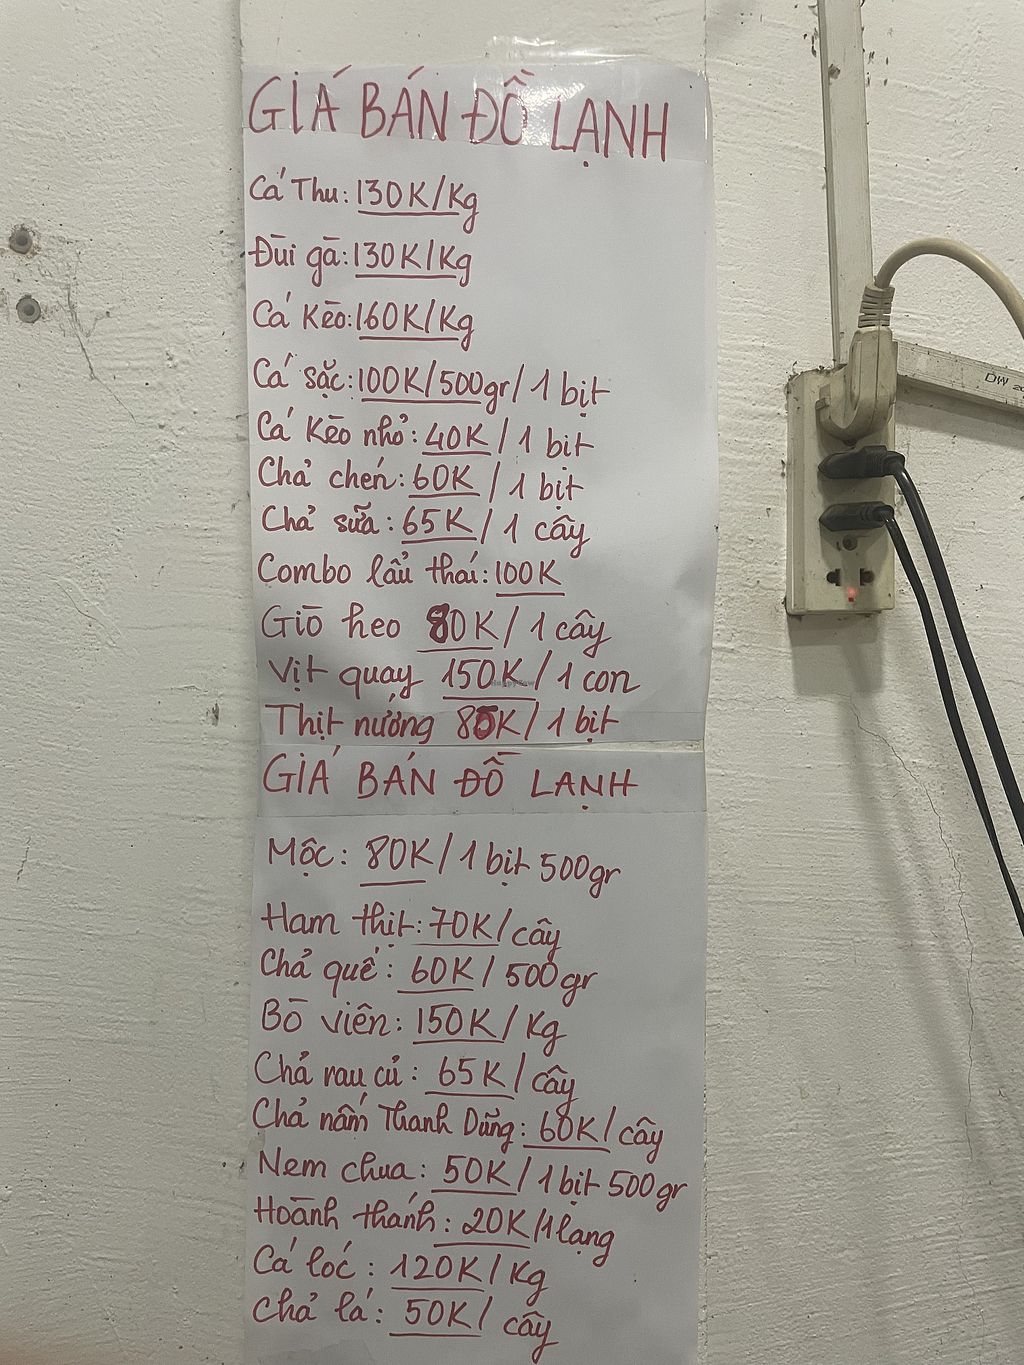 GIÁ BÁN ĐỒ LẠNH
Cá Thu: 130K/Kg
Đùi gà: 130K/Kg
Cá Kèo: 160K/Kg
Cá sặc: 100K/500gr/1 bịt
Cá Kèo nhỏ: 40K/1 bịt
Chả chén: 60K/1 bịt
Chả sữa: 65K/1 cây
Combo lẩu thái: 100K
Giò heo 80K/1 cây
Vịt quay 150K/1 con
Thịt nướng 80K/1 bịt
GIÁ BÁN ĐỒ LẠNH
Mộc: 80K/1 bịt 500gr
Ham thịt: 70K/cây
Chả quế: 60K/500gr
Bò viên: 150K/Kg
Chả rau củ: 65K/cây
Chả nấm Thanh Dũng: 60K/cây
Nem chua: 50K/1 bịt 500gr
Hoành thánh: 20K/1 lạng
Cá lóc: 120K/Kg
Chả lá: 50K/cây
HappyCow